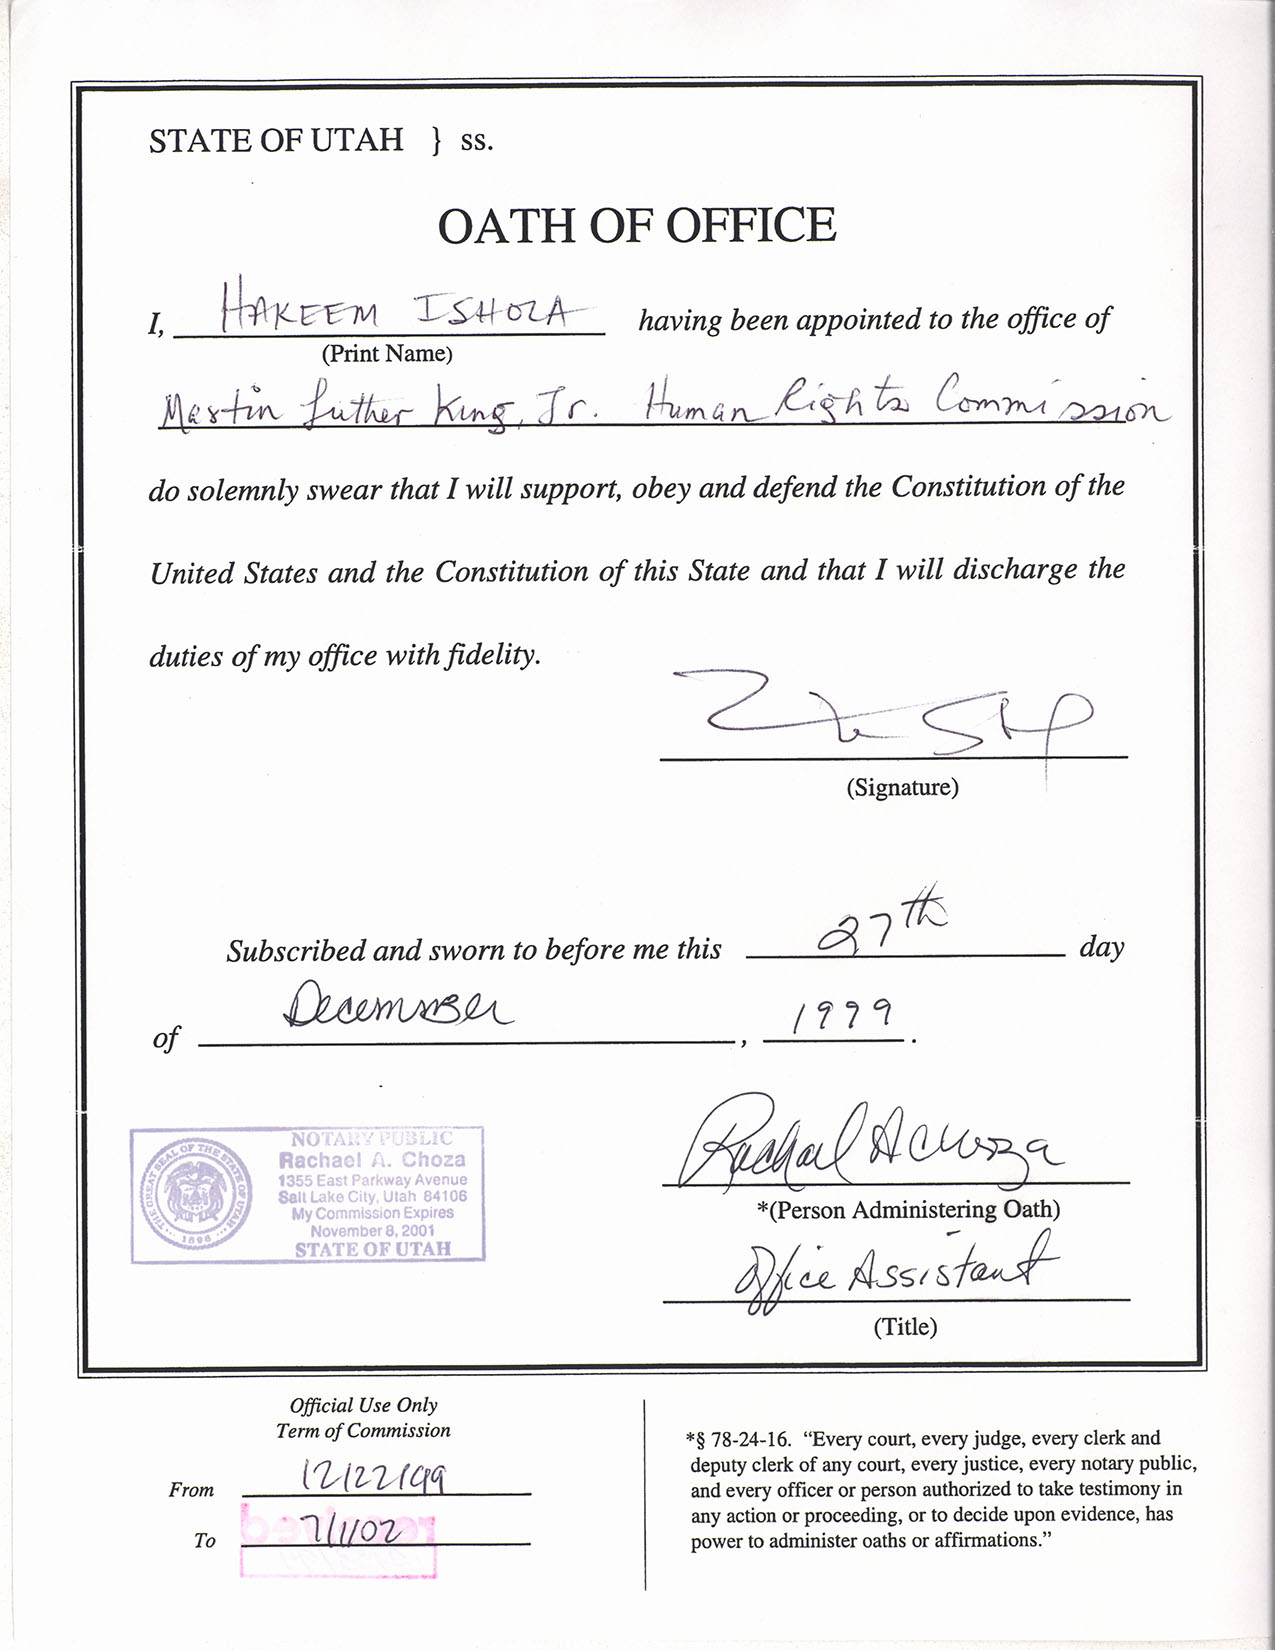 STATE OF UTAH } ss.
OATH OF OFFICE
I, HAKEEM ISHOLA having been appointed to the office of
(Print Name)
Martin Luther King, Jr. Human Rights Commission
do solemnly swear that I will support, obey and defend the Constitution of the
United States and the Constitution of this State and that I will discharge the
duties of my office with fidelity.
(Signature)
Subscribed and sworn to before me this 27th day
of December, 1999.
NOTARY PUBLIC
Rachael A. Choza
1355 East Parkway Avenue
Salt Lake City, Utah 84106
My Commission Expires
November 8, 2001
STATE OF UTAH
THE GREAT SEAL OF THE STATE OF UTAH
1896
Rachael A Choza
*(Person Administering Oath)
Office Assistant
(Title)
Official Use Only
Term of Commission
From 12/22/99
To 7/1/02
received
*§ 78-24-16. “Every court, every judge, every clerk and
deputy clerk of any court, every justice, every notary public,
and every officer or person authorized to take testimony in
any action or proceeding, or to decide upon evidence, has
power to administer oaths or affirmations.”